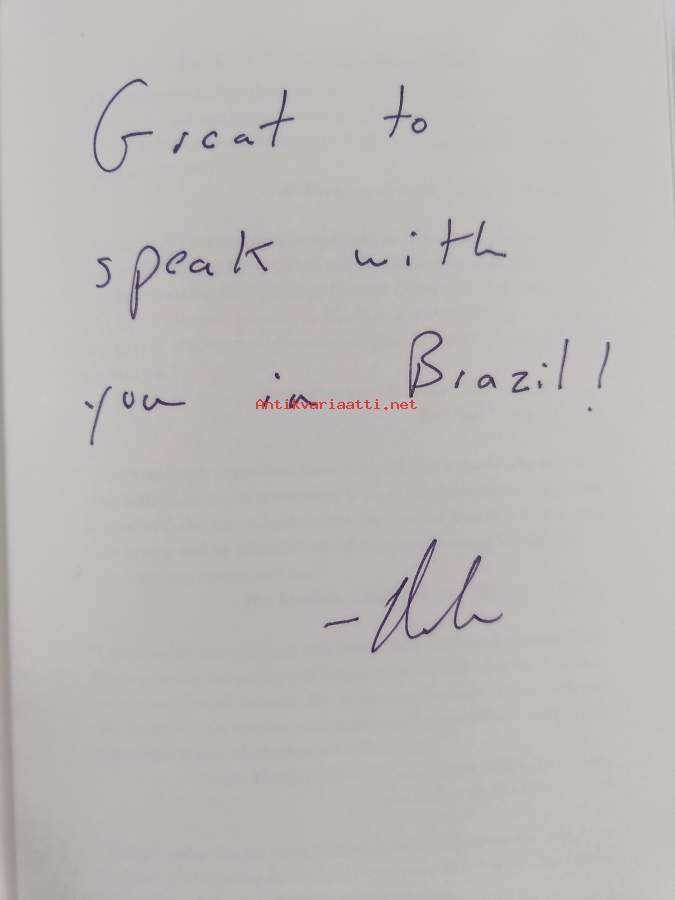 Great to
speak with
you in Brazil!
Antikvariaatti.net